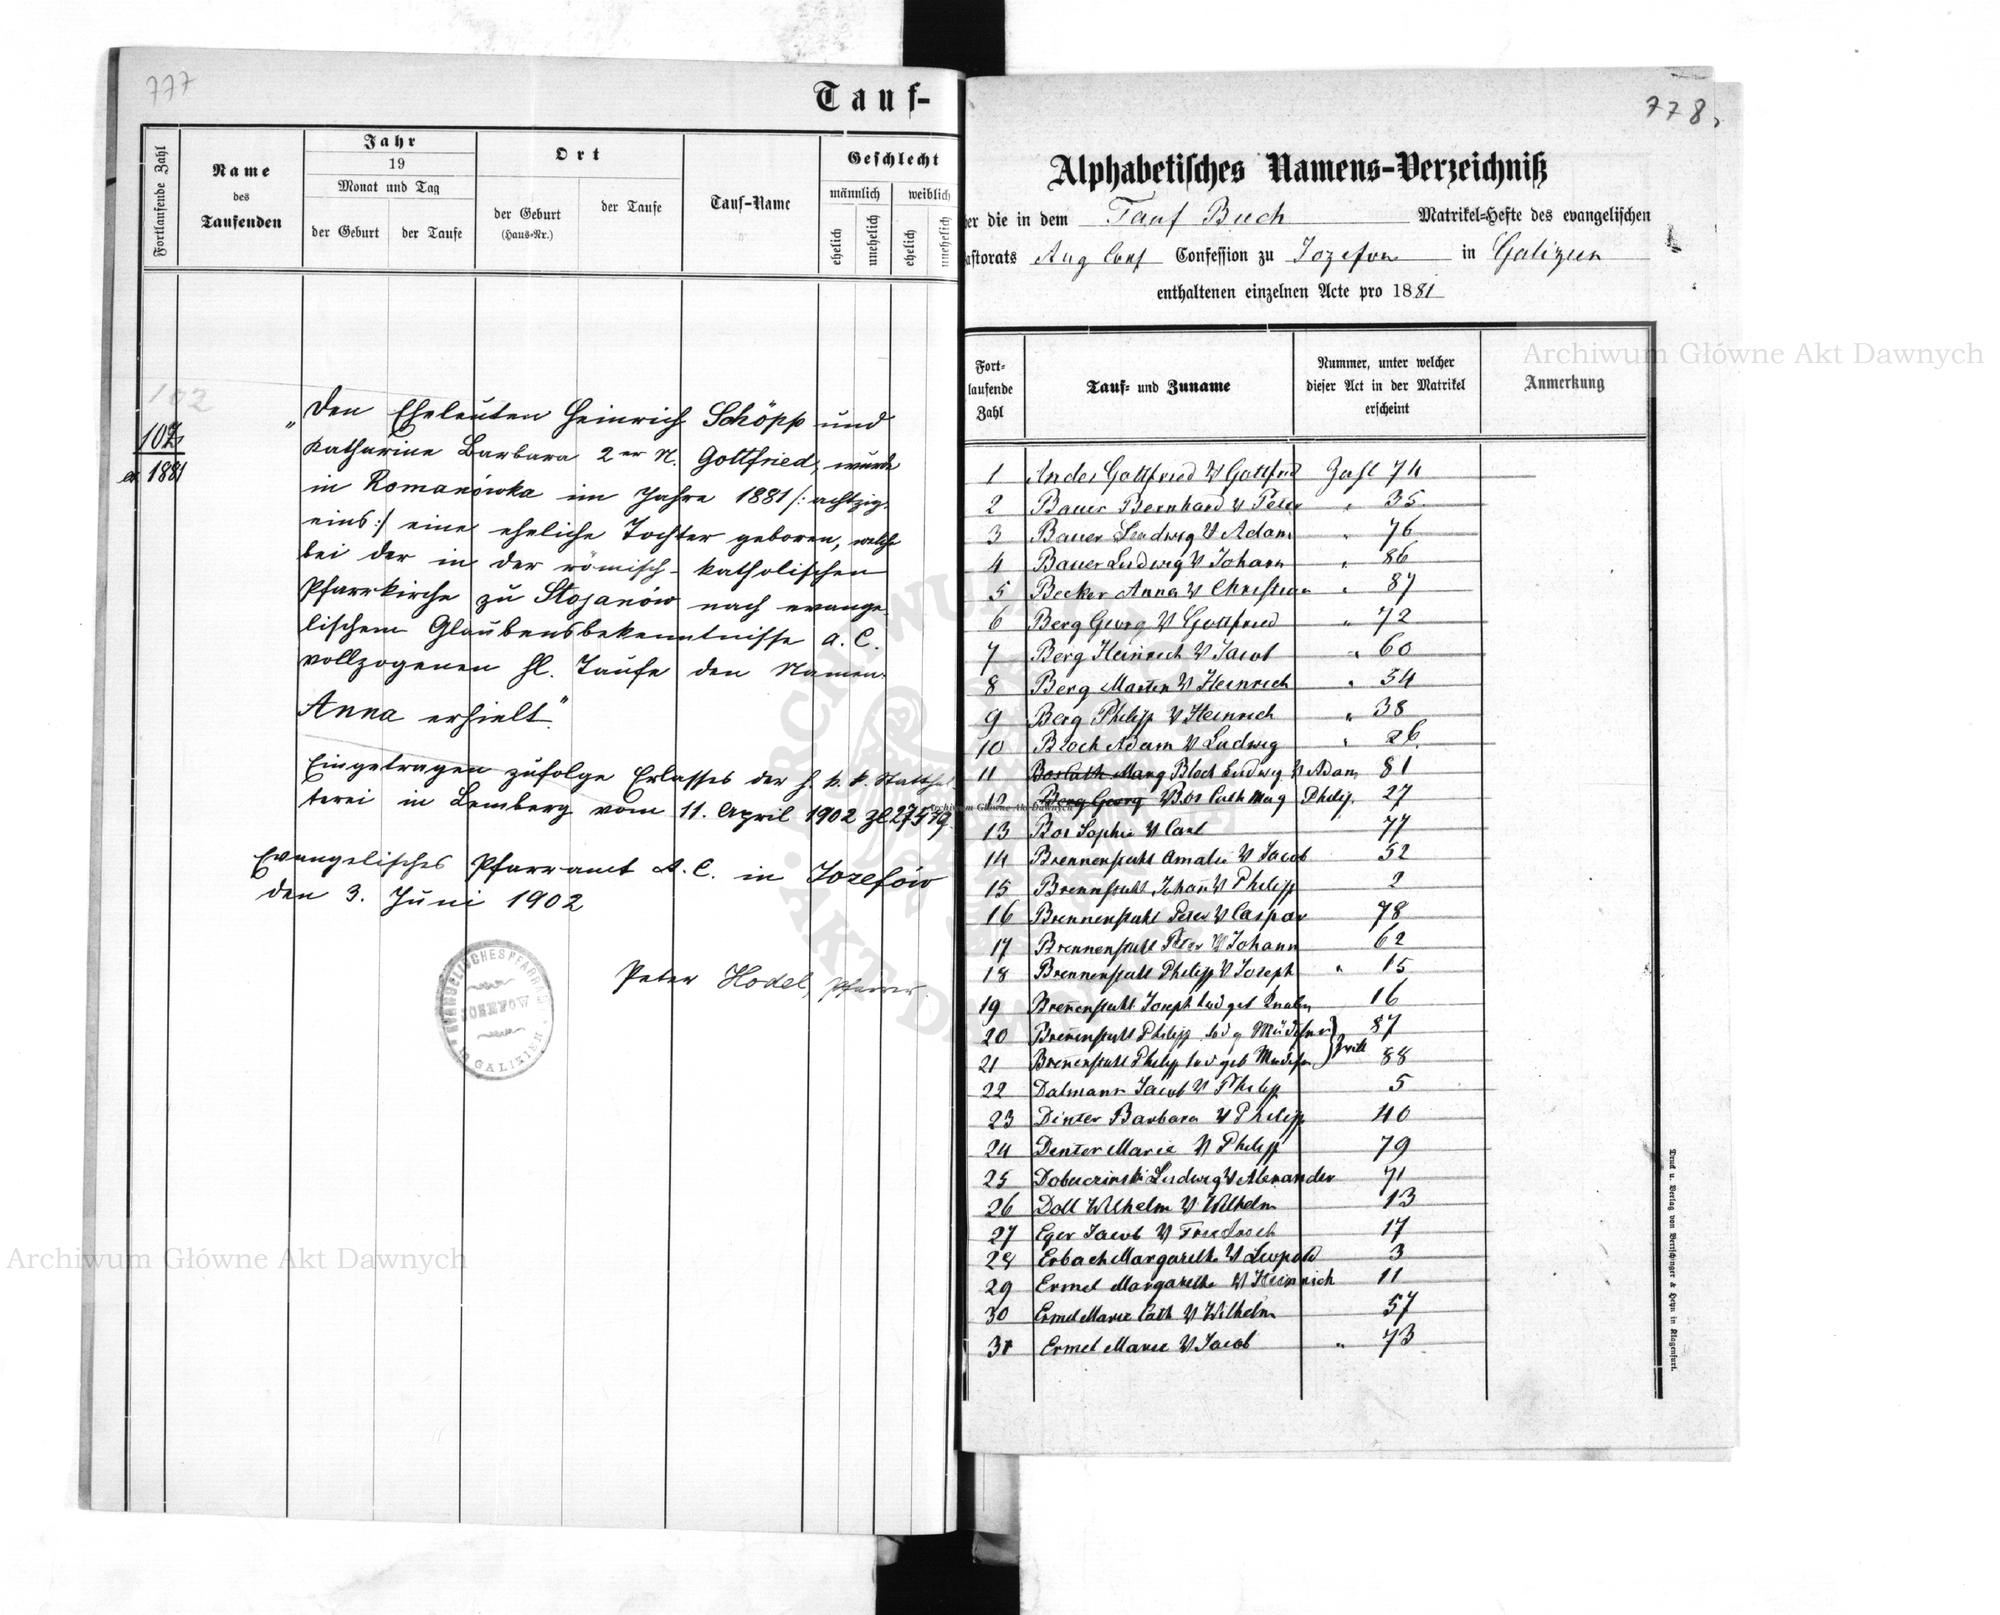 777
Tauf-
Fortlaufende Zahl
Name
des
Taufenden
Jahr
19
Monat und Tag
der Geburt
der Taufe
Ort
der Geburt
(Haus-Nr.)
der Taufe
Tauf-Name
Geschlecht
männlich
weiblich
ehelich
unehelich
ehelich
unehelich
102
107
ex 1881
"Den Eheleuten Heinrich Schöpp und
Katharine Barbara 2er N. Gottfried, wurde
in Romanówka im Jahre 1881 /: achtzig-
eins :/ eine eheliche Tochter geboren, welche
bei der in der römisch-katholischen
Pfarrkirche zu Stojanów nach evange-
lischem Glaubensbekenntnisse A. C.
vollzogenen hl. Taufe den Namen
Anna erhielt."
Eingetragen zufolge Erlasses der h. k. k. Statthal-
terei in Lemberg vom 11. April 1902 Zl 27579.
Evangelisches Pfarramt A. C. in Josefów
den 3. Juni 1902
Peter Hodel, Pfarrer.
EVANGELISCHES PFARRAMT
JOSEFOW
IN GALIZIEN
778,
Alphabetisches Namens-Verzeichniß
er die in dem Tauf Buch Matrikel-Hefte des evangelischen
astorats Aug Conf Confession zu Jozefow in Galizien
enthaltenen einzelnen Acte pro 1881
Fort-
laufende
Zahl
Tauf- und Zuname
Nummer, unter welcher
dieser Act in der Matrikel
erscheint
Anmerkung
1 Andes Gottfried V Gottfried Zahl 74
2 Bauer Bernhard V Peter " 35.
3 Bauer Ludwig V Adam " 76
4 Bauer Ludwig V Johann " 86
5 Becker Anna V Christian " 87
6 Berg Georg V Gottfried " 72
7 Berg Heinrich V Jacob " 60
8 Berg Martin V Heinrich " 54
9 Berg Philipp V Heinrich " 38
10 Bloch Adam V Ludwig " 26.
11 Bos Cath Marg Bloch Ludwig V Adam 81
12 Berg Georg Bos Cath Marg Philip. 27
13 Bos Sophie V Carl 77
14 Brennenstuhl Amalie V Jacob 52
15 Brennstuhl Johan V Philipp 2
16 Brennenstuhl Peter V Caspar 78
17 Brennenstuhl Peter V Johann 62
18 Brennenstuhl Philipp V Joseph " 15
19 Breñenstuhl Joseph tod geb Knaben 16
20 Breñenstuhl Philipp tod g Mädchen 87
21 Breñenstuhl Philipp tod geb Madchen 88
22 Dalmann Jacob V Philipp 5
23 Dinter Barbara V Philipp 40
24 Denter Marie V Philipp 79
25 Dobuczinski Ludwig V Alexander 71
26 Doll Wilhelm V Wilhelm 13
27 Eger Jacob V Friedrich 17
28 Erbach Margarethe V Leopold 3
29 Ermel Margarethe V Heinrich 11
30 Ermel Marie Cath V Wilhelm 57
31 Ermel Marie V Jacob " 73
Druck u. Verlag von Bertschinger & Heyn in Klagenfurt.
Archiwum Główne Akt Dawnych
Archiwum Główne Akt Dawnych
Archiwum Główne Akt Dawnych